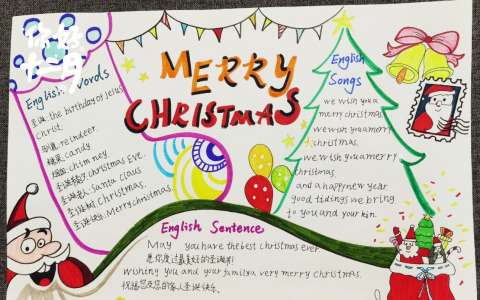 你好
十二月
MERRY
CHRISTMAS
English Words
圣诞: the birthday of Jesus
Christ.
驯鹿: reindeer.
糖果: candy
烟囱: chimney
圣诞节前夕: Christmas EVE.
圣诞老人: Santa Claus
圣诞树: Christmas.
圣诞快乐: Merry Christmas
English
Songs
we wish you a
merry christmas
we wish you a merry
christmas.
we wish you a merry
christmas
and a happy new year
good tidings we bring
to you and your kin.
English Sentence
May you have the best christmas ever.
愿你度过最美好的圣诞节!
Wishing you and your family a very merry christmas.
祝福您及您的家人圣诞快乐.